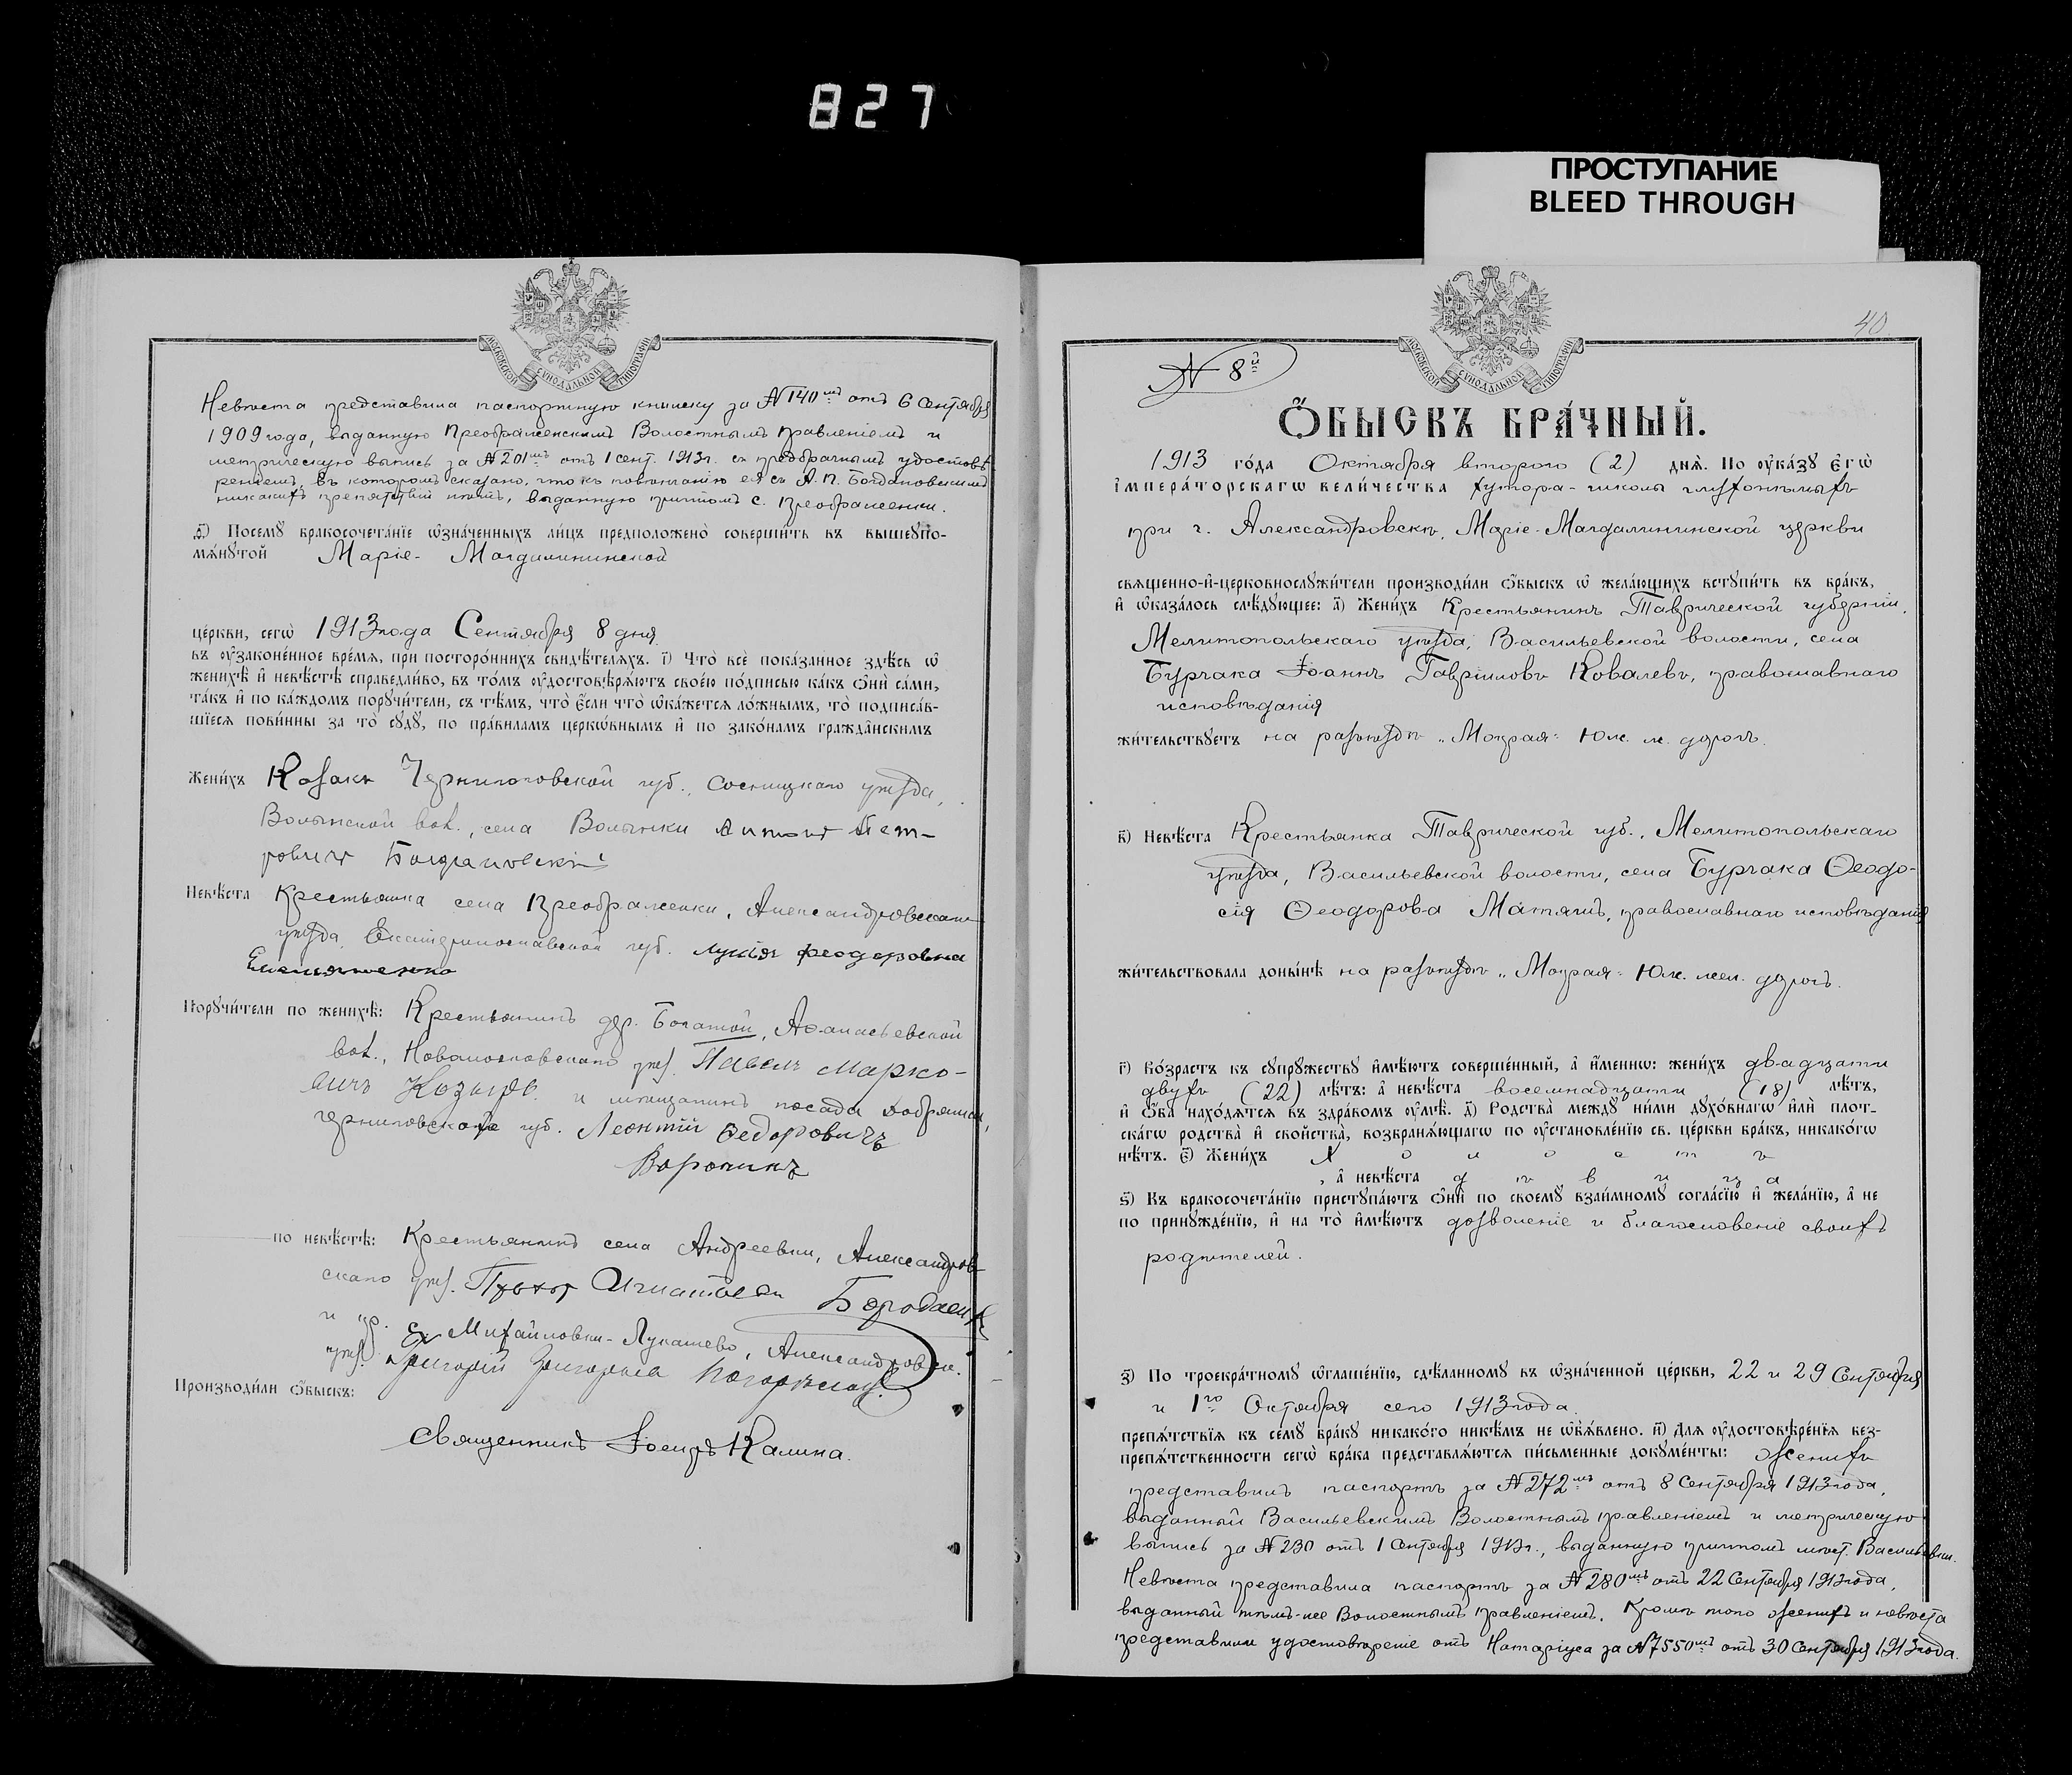 827
ПРОСТУПАНИЕ
BLEED THROUGH
МОСКОВСКОЙ СУНОДАЛЬНОЙ ТИПОГРАФІИ
Невѣста представила паспортную книжку за № 140мъ отъ 6 Сентября
1909 года, выданную Преображенскимъ Волостнымъ Правленіемъ и
метрическую выпись за № 201мъ отъ 1 сент. 1913 г. съ предбрачнымъ удостовѣ-
реніемъ, въ которомъ сказано, что къ повѣнчанію ея съ А. П. Богдановскимъ
никакихъ препятствій нѣтъ, выданную причтомъ с. Преображенки.
д҃і) Посемꙋ бракосочета́нїе ѡзна́ченныхъ ли́цъ предположено̀ соверши́ть въ вышеꙋпо-
мѧ́нꙋтой Маріе- Магдалининской
це́ркви, сегѡ̀ 1913 года Сентября 8 дня
въ ᲂу҆законе́нное вре́мѧ, при посторо́ннихъ свидѣ́телѧхъ. і҃) Что̀ всѐ пока́занное здѣ́сь ѡ҆
женихѣ̀ и҆ невѣ́стѣ справедли́во, въ то́мъ ᲂу҆достовѣрѧ́ютъ свое́ю по́дписью ка́къ ѻ҆нѝ са́ми,
та́къ и҆ по ка́ждомъ порꙋчи́тели, съ тѣ́мъ, что̀ є҆́сли что̀ ѡ҆ка́жетсѧ ло́жнымъ, то̀ подписа́в-
шїесѧ пови́нны за то̀ сꙋдꙋ̀, по пра́виламъ церкѡ́внымъ и҆ по зако́намъ гражда́нскимъ
Жени́хъ Козакъ Черниговской губ., Сосницкаго уѣзда,
Волынской вол., села Волынки Антонъ Пет-
ровичъ Богдановскій
Невѣ́ста Крестьянка села Преображенки, Александровскаго
уѣзда, Екатеринославской губ. Лукія Феодоровна
Емельяненко
Порꙋчи́тели по женихѣ̀: Крестьянинъ дер. Богатой, Афанасьевской
вол., Новомосковскаго уѣз. Павелъ Марко-
вичъ Козырь и мѣщанинъ посада Добрянки,
Черниговской губ. Леонтій Федоровичъ
Воронинъ
по невѣ́стѣ: Крестьянинъ села Андреевки, Александров-
скаго уѣз. Игнатьевъ Бородаенко
и кр. с. Михайловки-Лукашево, Александровск.
уѣз. Григорій Григорьевъ
Производи́ли ѻ҆́быскъ:
Священникъ Іосифъ Калина.
40
МОСКОВСКОЙ СУНОДАЛЬНОЙ ТИПОГРАФІИ
№ 8й
Ѻ҆́БЫСКЪ БРА́ЧНЫЙ.
1913 го́да Октября второго (2) днѧ̀. По ᲂу҆ка́зꙋ є҆гѡ̀
і҆мпера́торскагѡ вели́чества хутора-школы глухонѣмыхъ
при г. Александровскѣ, Маріе-Магдалининской церкви
свѧще́нно-и҆-церковнослꙋжи́тели производи́ли ѻ҆́быскъ ѡ҆ жела́ющихъ встꙋпи́ть въ бра́къ,
и҆ ѡ҆каза́лось слѣ́дꙋющее: а҃) Жени́хъ Крестьянинъ Таврической губерніи,
Мелитопольскаго уѣзда, Васильевской волости, села
Бурчака Іоаннъ Гавріиловъ Ковалевъ, православнаго
исповѣданія
жи́тельствꙋетъ на разъѣздѣ „Мокрая" Юж. ж. дорогъ.
в҃) Невѣ́ста Крестьянка Таврической губ., Мелитопольскаго
уѣзда, Васильевской волости, села Бурчака Ѳеодо-
сія Ѳеодорова Матяшъ, православнаго исповѣданія
жи́тельствовала доны́нѣ на разъѣздѣ „Мокрая" Юж. жел. дорогъ.
г҃) Во́зрастъ къ сꙋпрꙋ́жествꙋ и҆мѣ́ютъ соверше́нный, а҆ и҆́меннѡ: жени́хъ двадцати
двухъ (22) лѣ́тъ: а҆ невѣ́ста восемнадцати (18) лѣ́тъ,
и҆ ѻ҆́ба нахо́дѧтсѧ въ здра́вомъ ᲂу҆мѣ̀. д҃) Родства̀ междꙋ̀ ни́ми дꙋхо́внагѡ и҆лѝ плот-
ска́гѡ родства̀ и҆ свойства̀, возбранѧ́ющагѡ по ᲂу҆становле́нїю св. це́ркви бра́къ, никако́гѡ
нѣ́тъ. є҃) Жени́хъ холостъ
, а҆ невѣ́ста дѣвица
ѕ҃) Къ бракосочета́нїю пристꙋпа́ютъ ѻ҆нѝ по своемꙋ̀ взаи́мномꙋ согла́сїю и҆ жела́нїю, а҆ не
по принꙋжде́нїю, и҆ на то̀ и҆мѣ́ютъ дозволеніе и благословеніе своихъ
родителей.
з҃) По троекра́тномꙋ ѡ҆глаше́нїю, сдѣ́ланномꙋ въ ѡ҆зна́ченной це́ркви, 22 и 29 Сентября
и 1го Октября сего 1913 года
препѧ́тствїѧ къ семꙋ̀ бра́кꙋ никако́гѡ никѣ́мъ не ѡ҆б̾ѧ́влено. и҃) Длѧ ᲂу҆достовѣре́нїѧ без-
препѧ́тственности сегѡ̀ бра́ка представлѧ́ютсѧ пи́сьменные докꙋме́нты: Женихъ
представилъ паспортъ за № 272мъ отъ 8 Сентября 1913 года,
выданный Васильевскимъ Волостнымъ Правленіемъ и метрическую
выпись за № 230 отъ 1 Сентября 1913 г., выданную причтомъ мѣст. Васильевки.
Невѣста представила паспортъ за № 280мъ отъ 22 Сентября 1913 года,
выданный тѣмъ-же Волостнымъ Правленіемъ. Кромѣ того женихъ и невѣста
представили удостовѣреніе отъ Нотаріуса за № 7550мъ отъ 30 Сентября 1913 года.